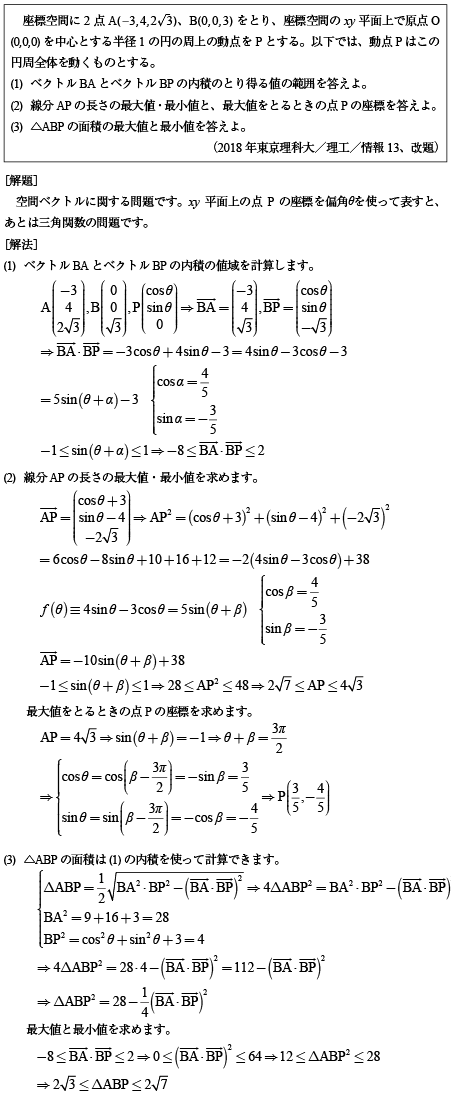 座標空間に2点A(−3,4,2√3)、B(0,0,3) をとり、座標空間の xy 平面上で原点 O
(0,0,0) を中心とする半径 1 の円の周上の動点を P とする。以下では、動点 P はこの
円周全体を動くものとする。
(1) ベクトル BA とベクトル BP の内積のとり得る値の範囲を答えよ。
(2) 線分 AP の長さの最大値・最小値と、最大値をとるときの点 P の座標を答えよ。
(3) △ABP の面積の最大値と最小値を答えよ。
(2018 年東京理科大/理工/情報 13、改題)
[解題]
空間ベクトルに関する問題です。xy 平面上の点 P の座標を偏角θを使って表すと、
あとは三角関数の問題です。
[解法]
(1) ベクトル BA とベクトル BP の内積の値域を計算します。
A(−3, 4, 2√3), B(0, 0, √3), P(cosθ, sinθ, 0) ⇒ BA→ = (−3, 4, √3), BP→ = (cosθ, sinθ, −√3)
⇒ BA→・BP→ = −3cosθ + 4sinθ − 3 = 4sinθ − 3cosθ − 3
= 5sin(θ+α) − 3 { cosα = 4/5, sinα = −3/5
−1 ≤ sin(θ+α) ≤ 1 ⇒ −8 ≤ BA→・BP→ ≤ 2
(2) 線分 AP の長さの最大値・最小値を求めます。
AP→ = (cosθ+3, sinθ−4, −2√3) ⇒ AP² = (cosθ+3)² + (sinθ−4)² + (−2√3)²
= 6cosθ − 8sinθ + 10 + 16 + 12 = −2(4sinθ − 3cosθ) + 38
f(θ) ≡ 4sinθ − 3cosθ = 5sin(θ+β) { cosβ = 4/5, sinβ = −3/5
AP→ = −10sin(θ+β) + 38
−1 ≤ sin(θ+β) ≤ 1 ⇒ 28 ≤ AP² ≤ 48 ⇒ 2√7 ≤ AP ≤ 4√3
最大値をとるときの点 P の座標を求めます。
AP = 4√3 ⇒ sin(θ+β) = −1 ⇒ θ+β = 3π/2
⇒ { cosθ = cos(β − 3π/2) = −sinβ = 3/5, sinθ = sin(β − 3π/2) = −cosβ = −4/5 ⇒ P(3/5, −4/5)
(3) △ABP の面積は (1) の内積を使って計算できます。
{ △ABP = 1/2 √(BA²・BP² − (BA→・BP→)²) ⇒ 4△ABP² = BA²・BP² − (BA→・BP→)
BA² = 9+16+3 = 28
BP² = cos²θ + sin²θ + 3 = 4
⇒ 4△ABP² = 28・4 − (BA→・BP→)² = 112 − (BA→・BP→)²
⇒ △ABP² = 28 − 1/4 (BA→・BP→)²
最大値と最小値を求めます。
−8 ≤ BA→・BP→ ≤ 2 ⇒ 0 ≤ (BA→・BP→)² ≤ 64 ⇒ 12 ≤ △ABP² ≤ 28
⇒ 2√3 ≤ △ABP ≤ 2√7